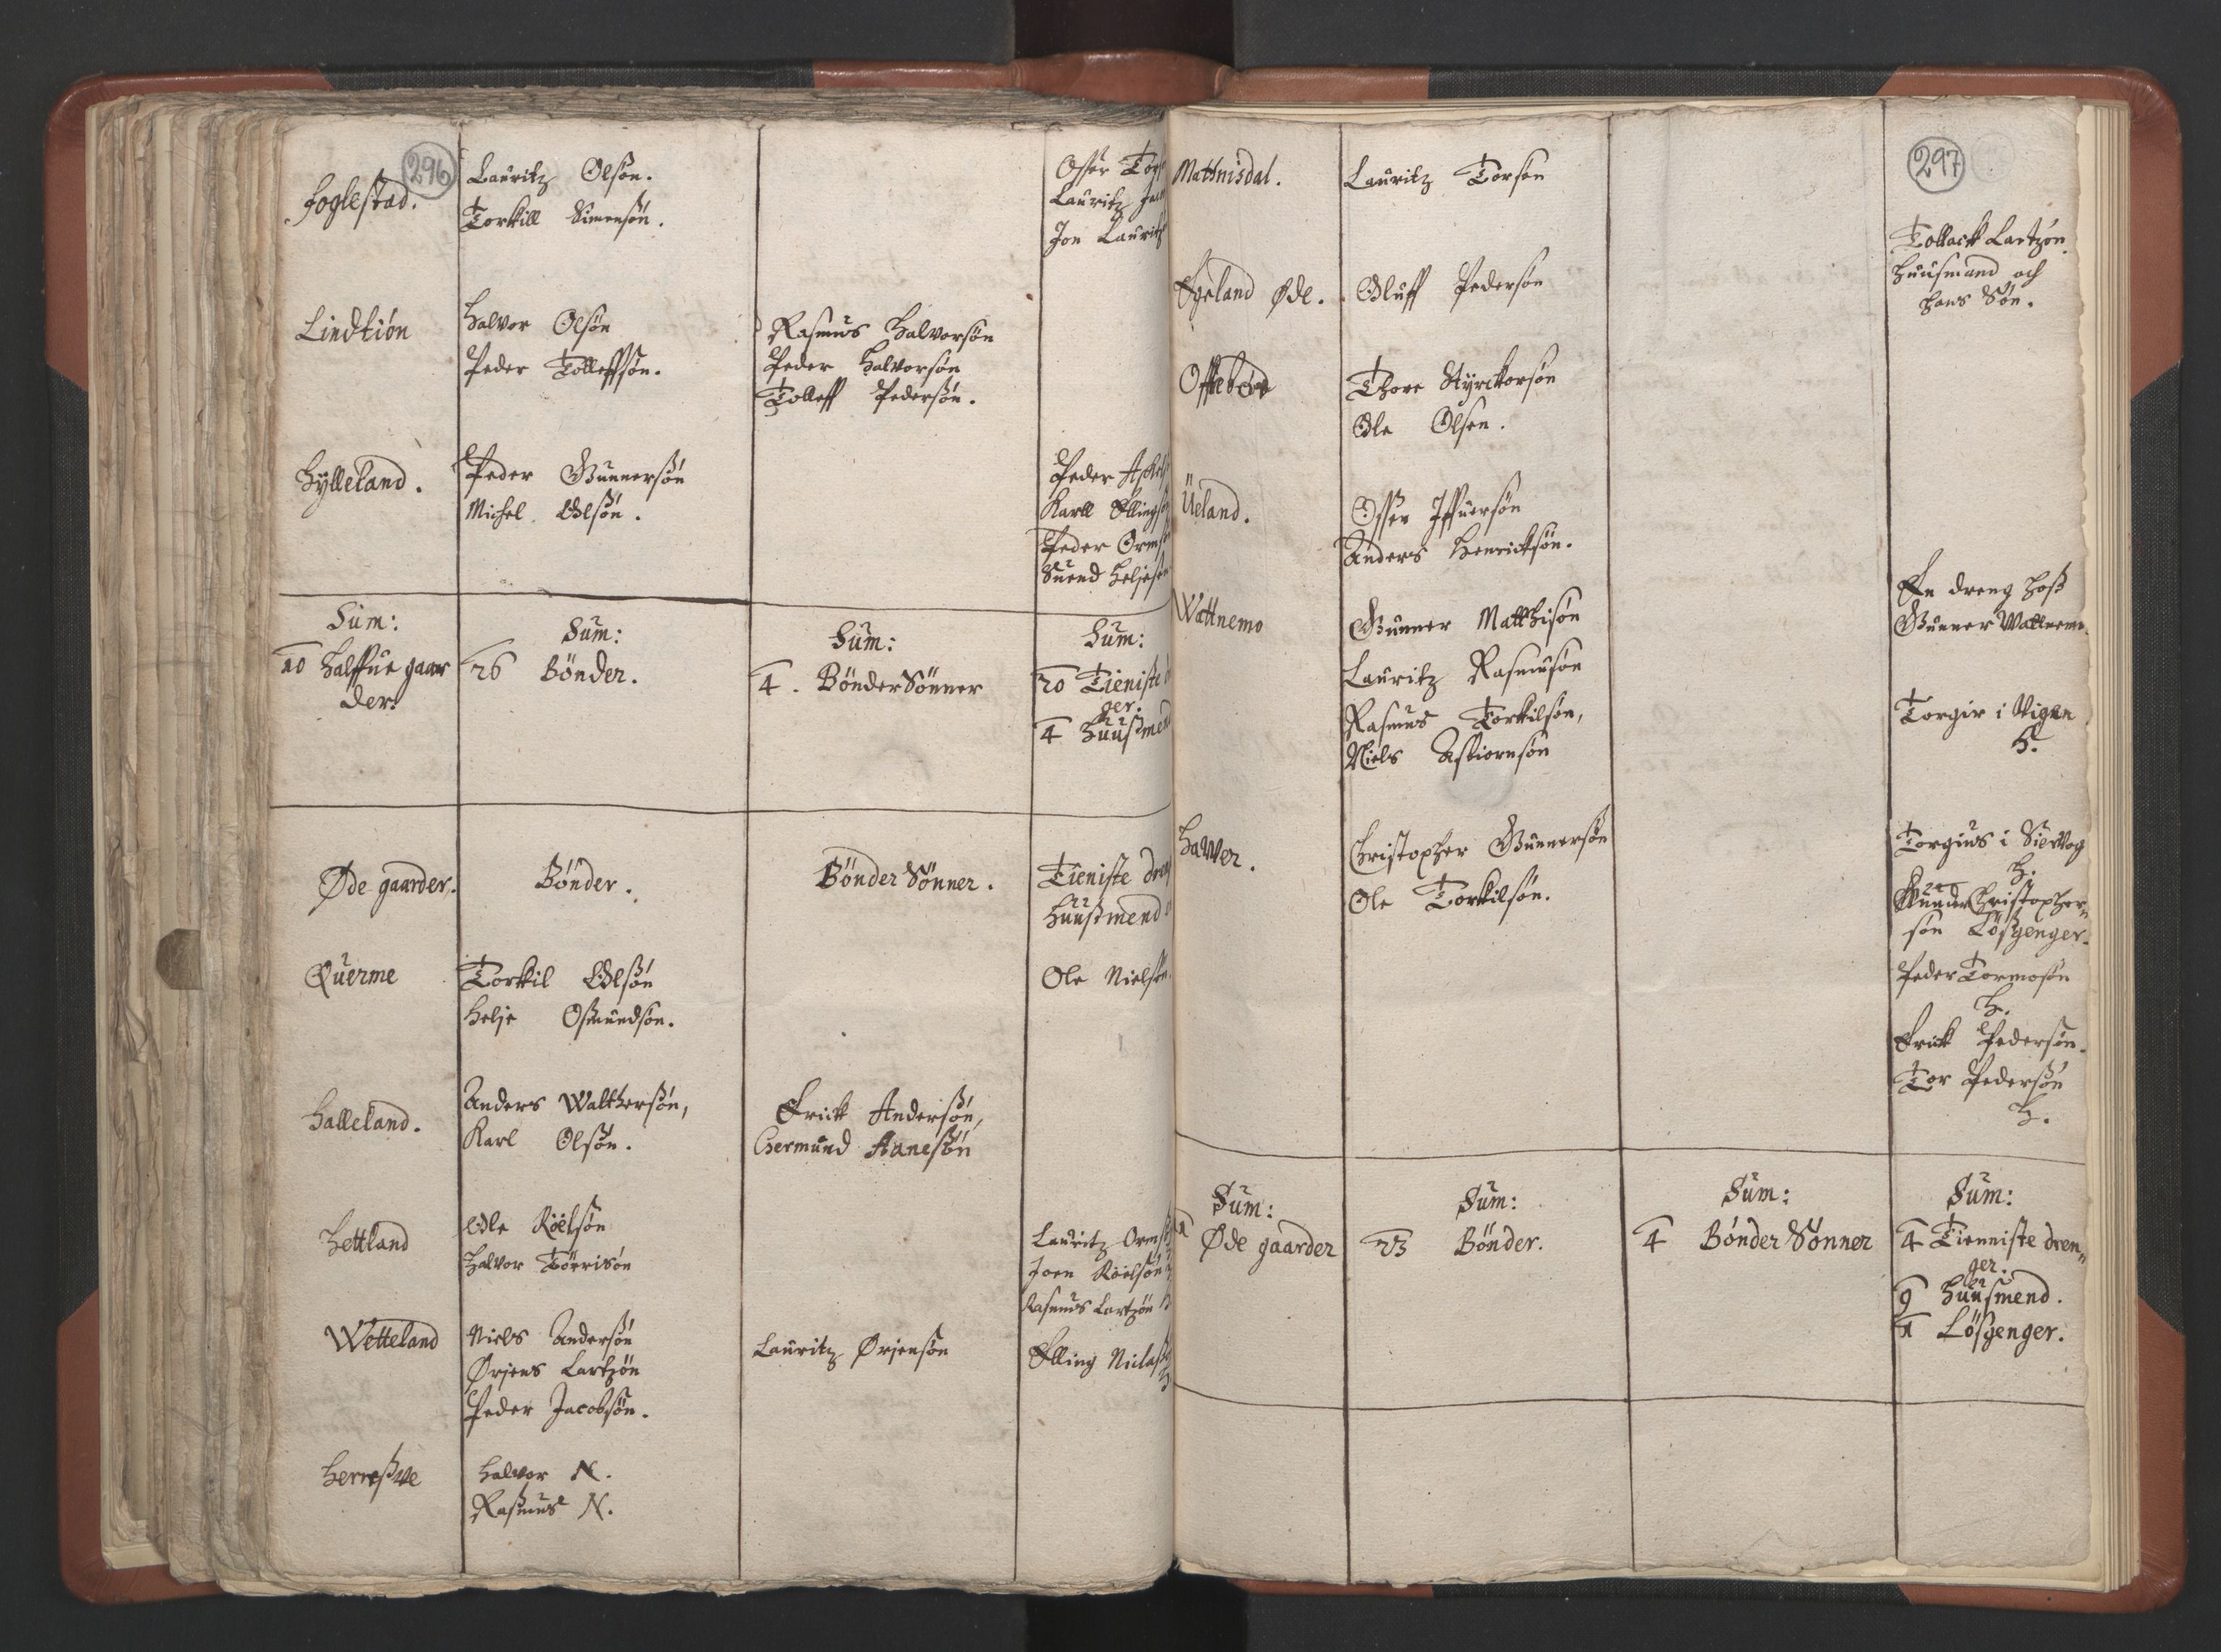 296
Foglestad.
Lauritz Olsøn.
Torkill Simensøn.
Osser
Lauritz
Jon Lauritz
Lindtiøn
Halvor Olsøn
Peder Tolleffsøn.
Rasmus Halvorsøn
Peder Halvorsøn
Tolleff Pedersøn.
Hylleland.
Peder Gunnersøn
Michel Olsøn.
Peder
Karll Elling
Peder Orm
Suend Heljes
Sum:
10 halffue gaar
der.
Sum:
26 Bönder.
Sum:
4. Bönder Sönner
Sum:
20 Tieniste
ger.
4 Huusmen
Øde gaarder.
Bönder.
Bönder Sönner.
Tieniste dren
Huusmend
Querme
Torkil Olsøn
Helje Osmundsøn.
Ole Nielsøn
Halleland.
Anders Walthersøn,
Karl Olsøn.
Erick Andersøn,
Germund Aanesøn
Hettland
Ole Röelsøn
Halvor Törrisøn
Lauritz Orms
Joen Röelsøn
Rasmus Lartzøn
Wetteland
Niels Andersøn
Ørjens Lartzøn
Peder Jacobsøn.
Lauritz Ørjensøn
Elling Niclas
Herreswe
Halvor N.
Rasmus N.
297
Mattnisdal.
Lauritz Torsøn
Tollack Lartzøn
Huusmand och
hans Søn.
Egeland Øde.
Oluff Pedersøn
Offtebroe
Thore Styrckorsøn
Ole Olsøn.
Üeland.
Osser Iffuersøn
Anders Henricksøn.
Wattnemo
Gunner Matthisøn
Lauritz Rasmusøn
Rasmus Torkilsøn,
Niels Astiornsøn
En dreng hoß
Gunner Wattnemo.
Torgir i Vigen
H.
Hawer.
Christopher Gunnersøn
Ole Torkilsøn.
Torgius i Sirevog
H.
Gunder Christopher„
søn Lösgenger.
Peder Tormosøn
H.
Erick Pedersøn.
Tor Pedersøn
H.
Sum:
Øde gaarder
Sum:
23 Bönder.
Sum:
4 Bönder Sönner
Sum:
4 Tienniste dren„
ger.
9 Huusmend.
1 Lösgenger.